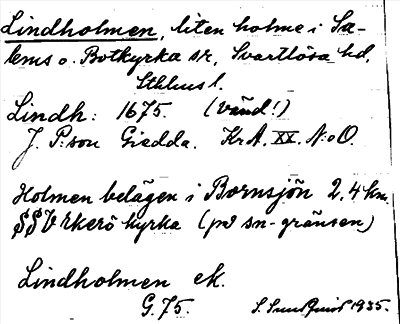 Lindholmen, liten holme i Sa-
lems o. Botkyrka sr, Svartlösa hd,
Sthlms l.
Lindh: 1675. (vänd!)
J. P:son Giedda. KrA. XX. N:o O.
Holmen belägen i Bornsjön 2,4 km.
SSV kerö kyrka (på sn-gränsen)
Lindholmen ek.
G.75. S. Sundquist 1935.